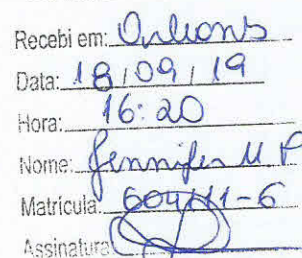 Recebi em: Orleans
Data: 18/09/19
Hora: 16:20
Nome: Jennifer M P
Matrícula:
Assinatura